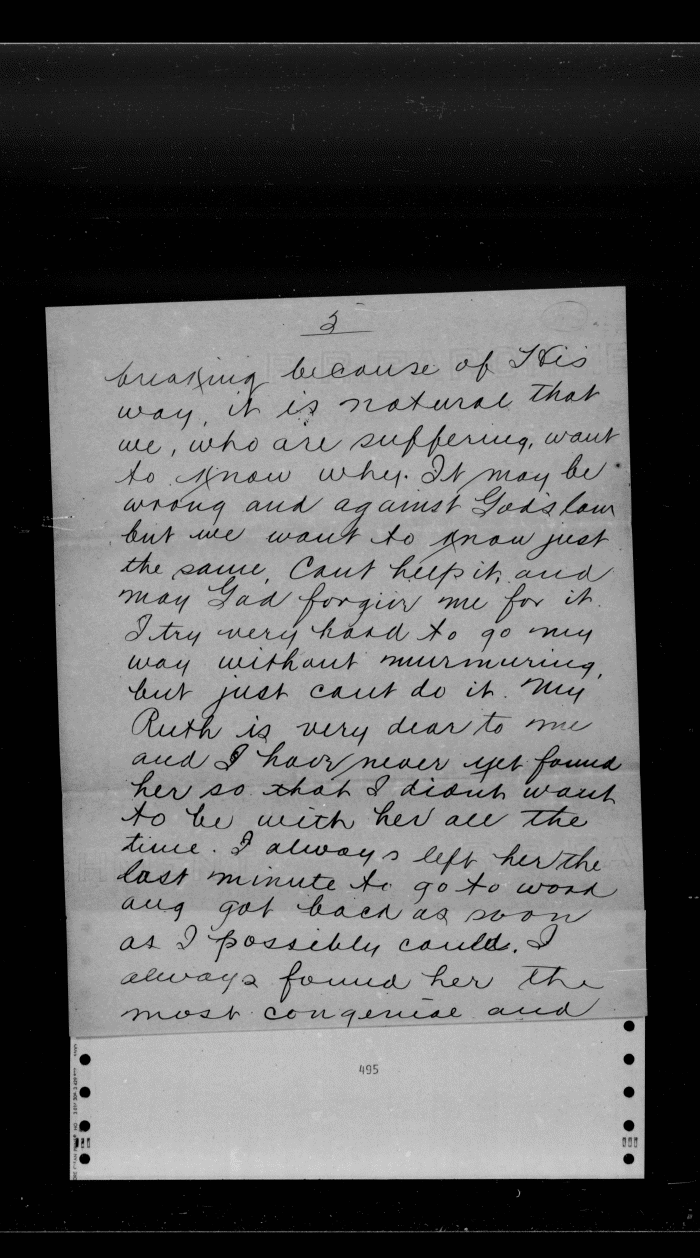 3
breaking because of His
way, it is natural that
we, who are suffering, want
to know why. It may be
wrong and against God's law
but we want to know just
the same. Cant help it, and
may God forgive me for it.
I try very hard to go my
way without murmuring,
but just cant do it. My
Ruth is very dear to me
and I have never yet found
her so that I didnt want
to be with her all the
time. I always left her the
last minute to go to work
and got back as soon
as I possibly could. I
always found her the
most congenial and
495